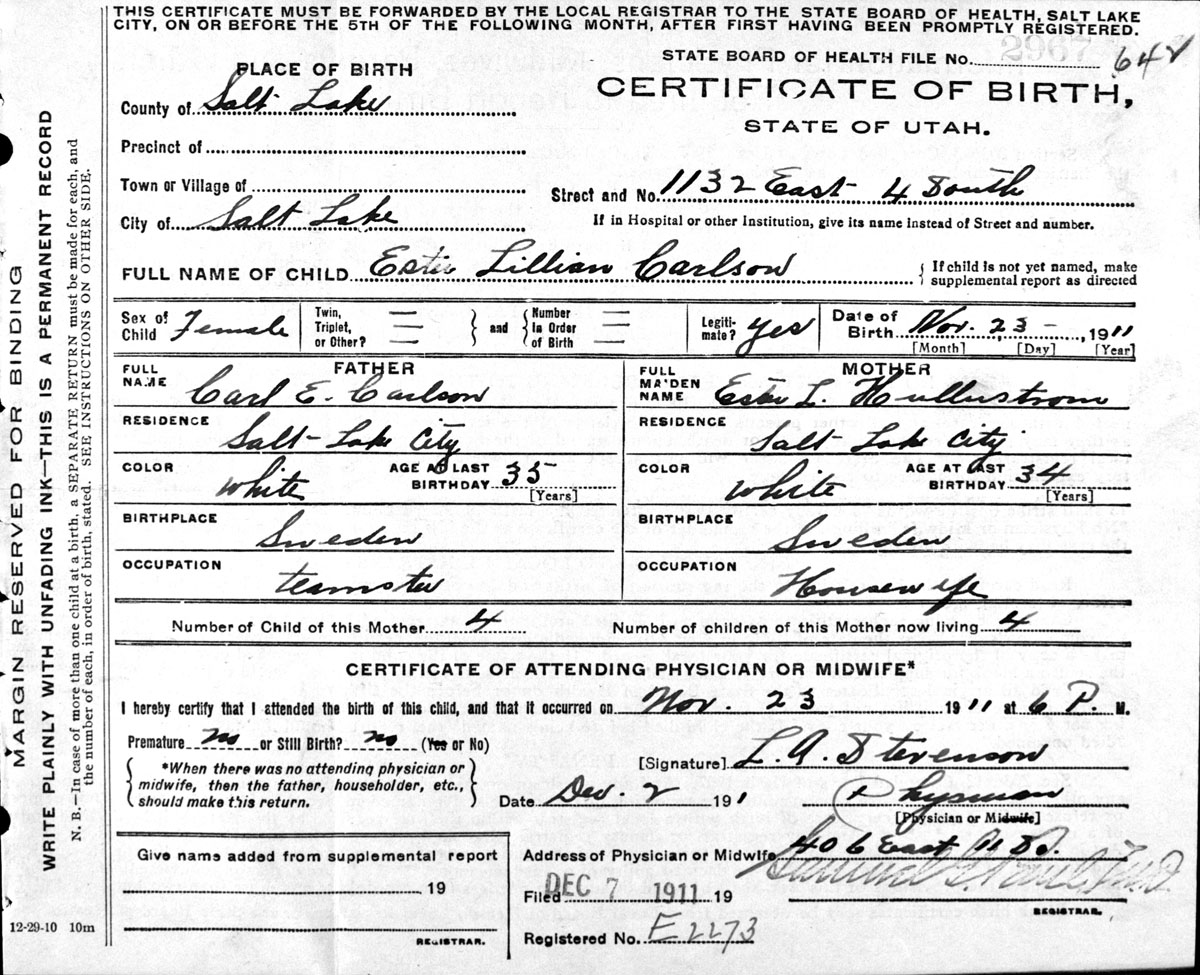 THIS CERTIFICATE MUST BE FORWARDED BY THE LOCAL REGISTRAR TO THE STATE BOARD OF HEALTH, SALT LAKE
CITY, ON OR BEFORE THE 5TH OF THE FOLLOWING MONTH, AFTER FIRST HAVING BEEN PROMPTLY REGISTERED.
MARGIN RESERVED FOR BINDING
WRITE PLAINLY WITH UNFADING INK—THIS IS A PERMANENT RECORD
N. B.—In case of more than one child at a birth, a SEPARATE RETURN must be made for each, and
the number of each, in order of birth, stated. SEE INSTRUCTIONS ON OTHER SIDE.
2967
STATE BOARD OF HEALTH FILE No. 642
PLACE OF BIRTH
CERTIFICATE OF BIRTH,
STATE OF UTAH.
County of Salt Lake
Precinct of
Town or Village of
Street and No. 1132 East 4 South
City of Salt Lake
If in Hospital or other Institution, give its name instead of Street and number.
FULL NAME OF CHILD Lillian Carlson
If child is not yet named, make
supplemental report as directed
Sex of Child Female
Twin, Triplet, or Other? —
and
Number In Order of Birth —
Legiti-mate? Yes
Date of Birth Nov. 23 - , 1911
[Month] [Day] [Year]
FATHER
MOTHER
FULL NAME Carl E. Carlson
FULL MAIDEN NAME L.
RESIDENCE Salt Lake City
RESIDENCE Salt Lake City
COLOR White AGE AT LAST BIRTHDAY 35 [Years]
COLOR White AGE AT LAST BIRTHDAY 34 [Years]
BIRTHPLACE Sweden
BIRTHPLACE Sweden
OCCUPATION teamster
OCCUPATION Housewife
Number of Child of this Mother 4
Number of children of this Mother now living 4
CERTIFICATE OF ATTENDING PHYSICIAN OR MIDWIFE*
I hereby certify that I attended the birth of this child, and that it occurred on Nov. 23 1911 at 6 P. M.
Premature no or Still Birth? no (Yes or No)
*When there was no attending physician or
midwife, then the father, householder, etc.,
should make this return.
[Signature] L. A. Stevenson
Date Dec. 2 191 Physician
[Physician or Midwife]
Give name added from supplemental report
19
REGISTRAR.
Address of Physician or Midwife 406 East 11 So.
Filed DEC 7 1911 19
REGISTRAR.
Registered No. E2273
12-29-10 10m